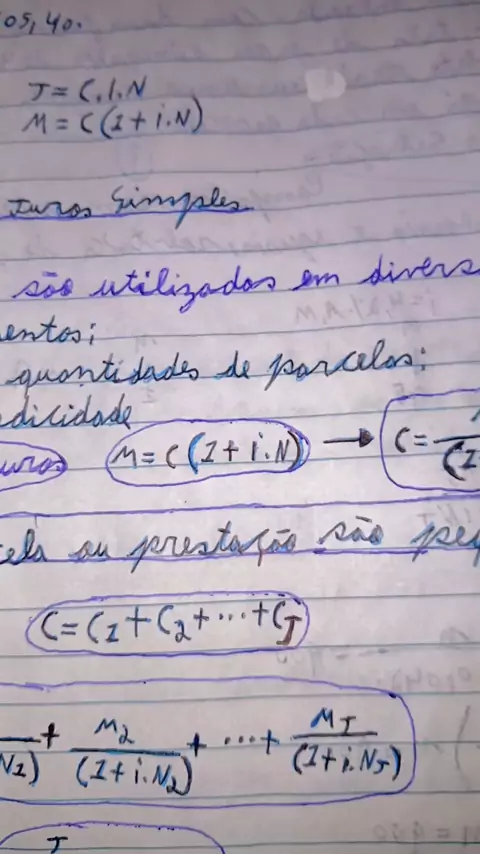 05,40.
J = C.I.N
M = C(1+i.N)
Juros Simples
são utilizados em divers
mentos;
quantidades de parcelas:
dicidade
uros M = C(1+i.N) → C = 
cela ou prestação são peq
C = C1 + C2 + ... + CJ
N1) + M2/(1+i.N2) + ... + MJ/(1+i.NJ)
J